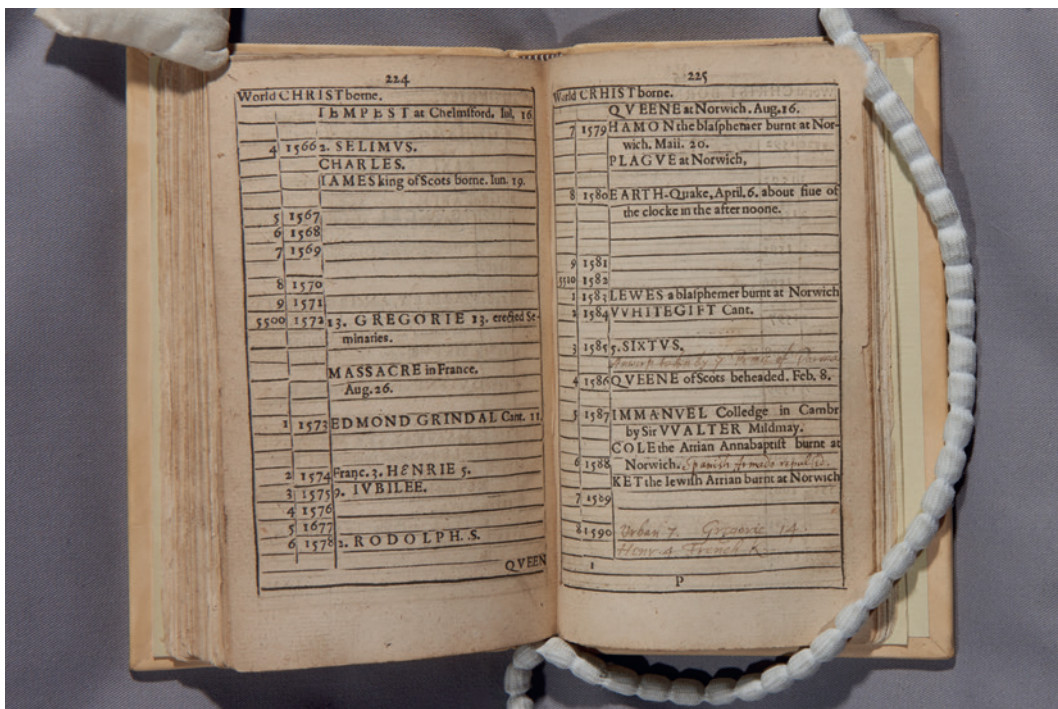 224
World CHRIST borne.
TEMPEST at Chelmsford. Iul. 16
4 1566 2. SELIMVS.
CHARLES.
IAMES king of Scots borne. Iun. 19.
5 1567
6 1568
7 1569
8 1570
9 1571
5500 1572 13. GREGORIE 13. erected Se-
minaries.
MASSACRE in France.
Aug. 26.
1 1573 EDMOND GRINDAL Cant. 11.
2 1574 Franc. 3. HENRIE 5.
3 1575 9. IVBILEE.
4 1576
5 1677
6 1578 2. RODOLPH. S.
QVEEN
225
World CRHIST borne.
QVEENE at Norwich. Aug. 16.
7 1579 HAMON the blaſphemer burnt at Nor-
wich. Maii. 20.
PLAGVE at Norwich,
8 1580 EARTH-Quake, April. 6. about fiue of
the clocke in the after noone.
9 1581
5510 1582
1 1583 LEWES a blaſphemer burnt at Norwich
2 1584 VVHITEGIFT Cant.
3 1585 5. SIXTVS.
Antwerp taken by of Parma
4 1586 QVEENE of Scots beheaded. Feb. 8.
5 1587 IMMANVEL Colledge in Cambr
by Sir VVALTER Mildmay.
COLE the Arrian Annabaptiſt burnt at
6 1588 Norwich. Spanish Armado
KET the Iewiſh Arrian burnt at Norwich
7 1589
8 1590 Urban 7. Gregorie 14.
Henr. 4 French K.
1
P